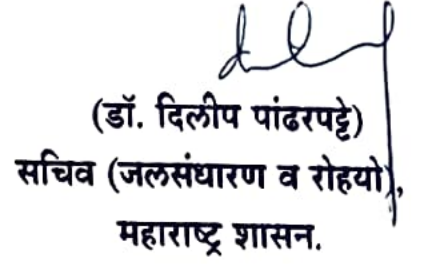 (डॉ. दिलीप पांढरपट्टे)
सचिव (जलसंधारण व रोहयो),
महाराष्ट्र शासन.